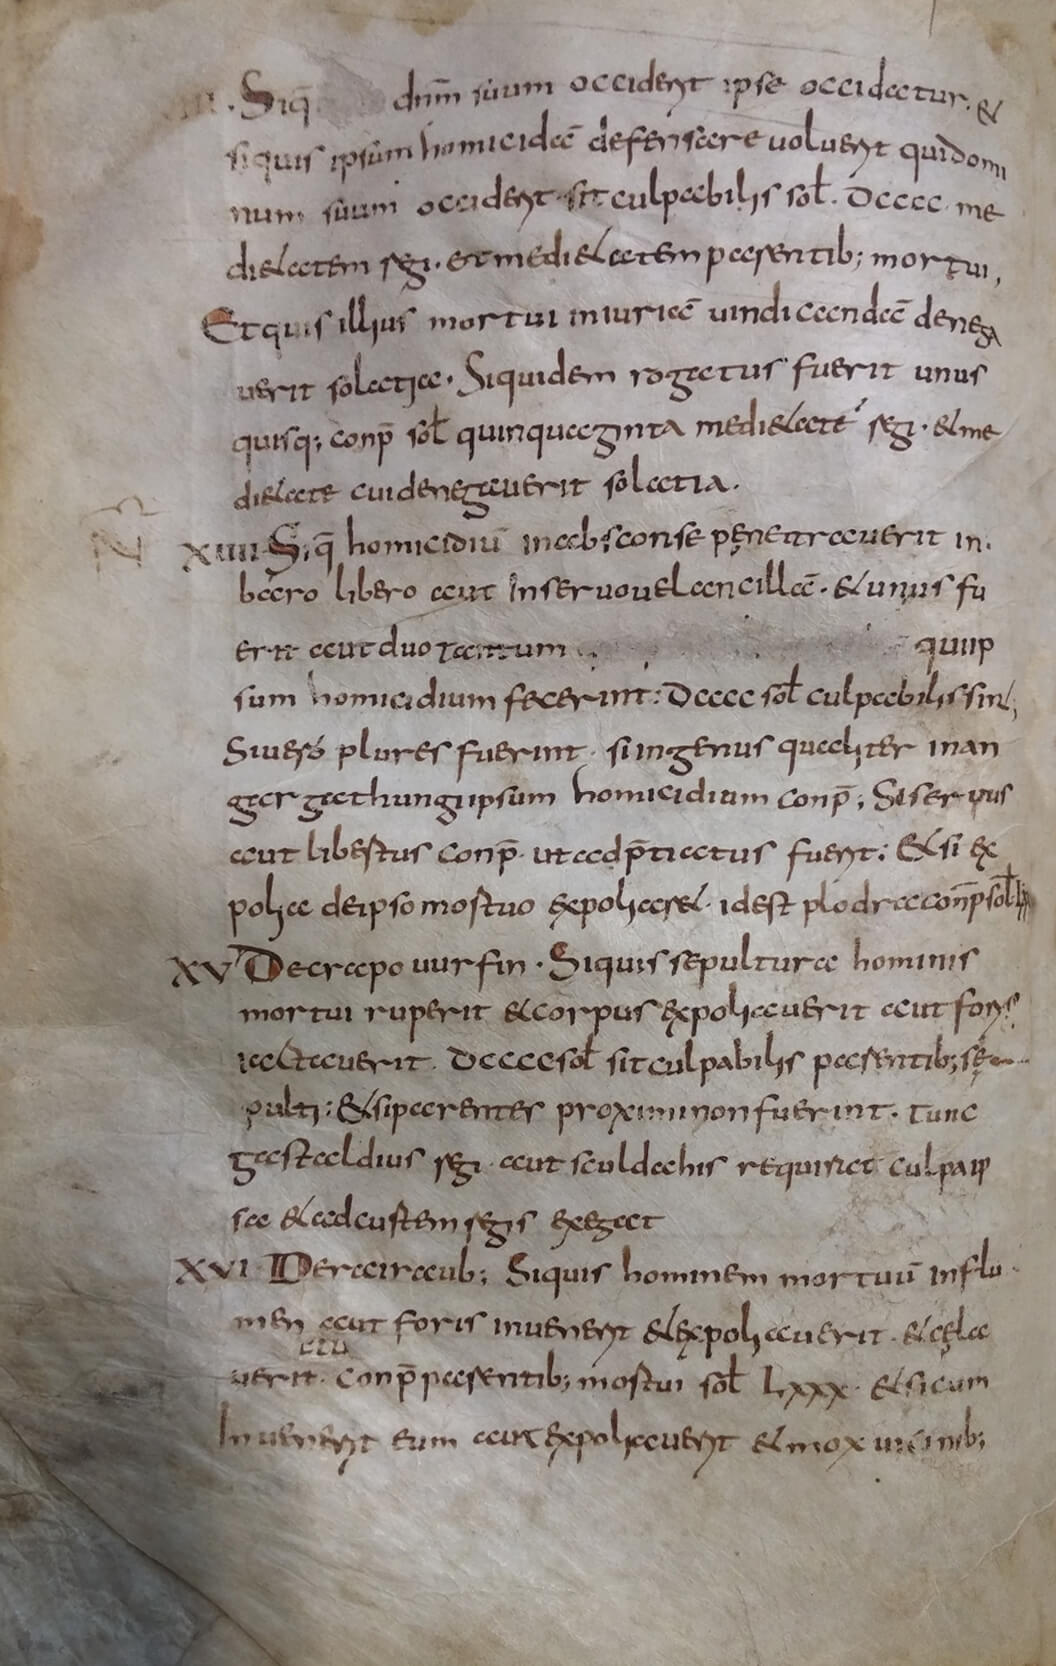 . Siq̄ dn̄m suum occiderit ipse occidatur. &
siquis ipsum homicidā defensare uoluerit qui domi
num suum occiderit sit culpabilis sol̄. dcccc me
di&atem regi. et medi&atem parentib; mortui,
Et quis illius mortui iniuriā uindicandā denega
uerit solatia. Siquidem rogatus fuerit unus
quisq; conp̄ sol̄ quinquaginta medi&atē regi. & me
di&atē cui denegauerit solatia.
XIIII Siq̄ homicidiū in absconse penetrauerit in
baro libero aut In seruo uel ancillā. & unus fu
erit aut duo tantum qui ip
sum homicidium fecerint: dcccc sol̄ culpabilis sint;
Siuero plures fuerint. si ingenus qualiter in an
gargathungi ipsum homicidium conp̄; Si seruus
aut libertus conp̄. ut adp̄tiatus fuerit; & si ex
polia de ipso mortuo expoliaret. id est plodra conp̄ sol̄
XV De crapo uurfin. Siquis sepultura hominis
mortui ruperit & corpus expoliauerit aut foris
iactauerit. dcccc sol̄ sit culpabilis parentib; se
pulti: & si parentes proximi non fuerint. tunc
gastaldius regi aut sculdahis requirat culpa ip
sa & ad curtem regis exegat
XVI De rairaub; Siquis hominem mortuū in flu
men aut foris inuenerit & expoliauerit. & cela
uerit. conp̄ parentib; mortui sol̄ Lxxx. & si cum
Inuenerit eum aut expoliauerit & mox uicinib;